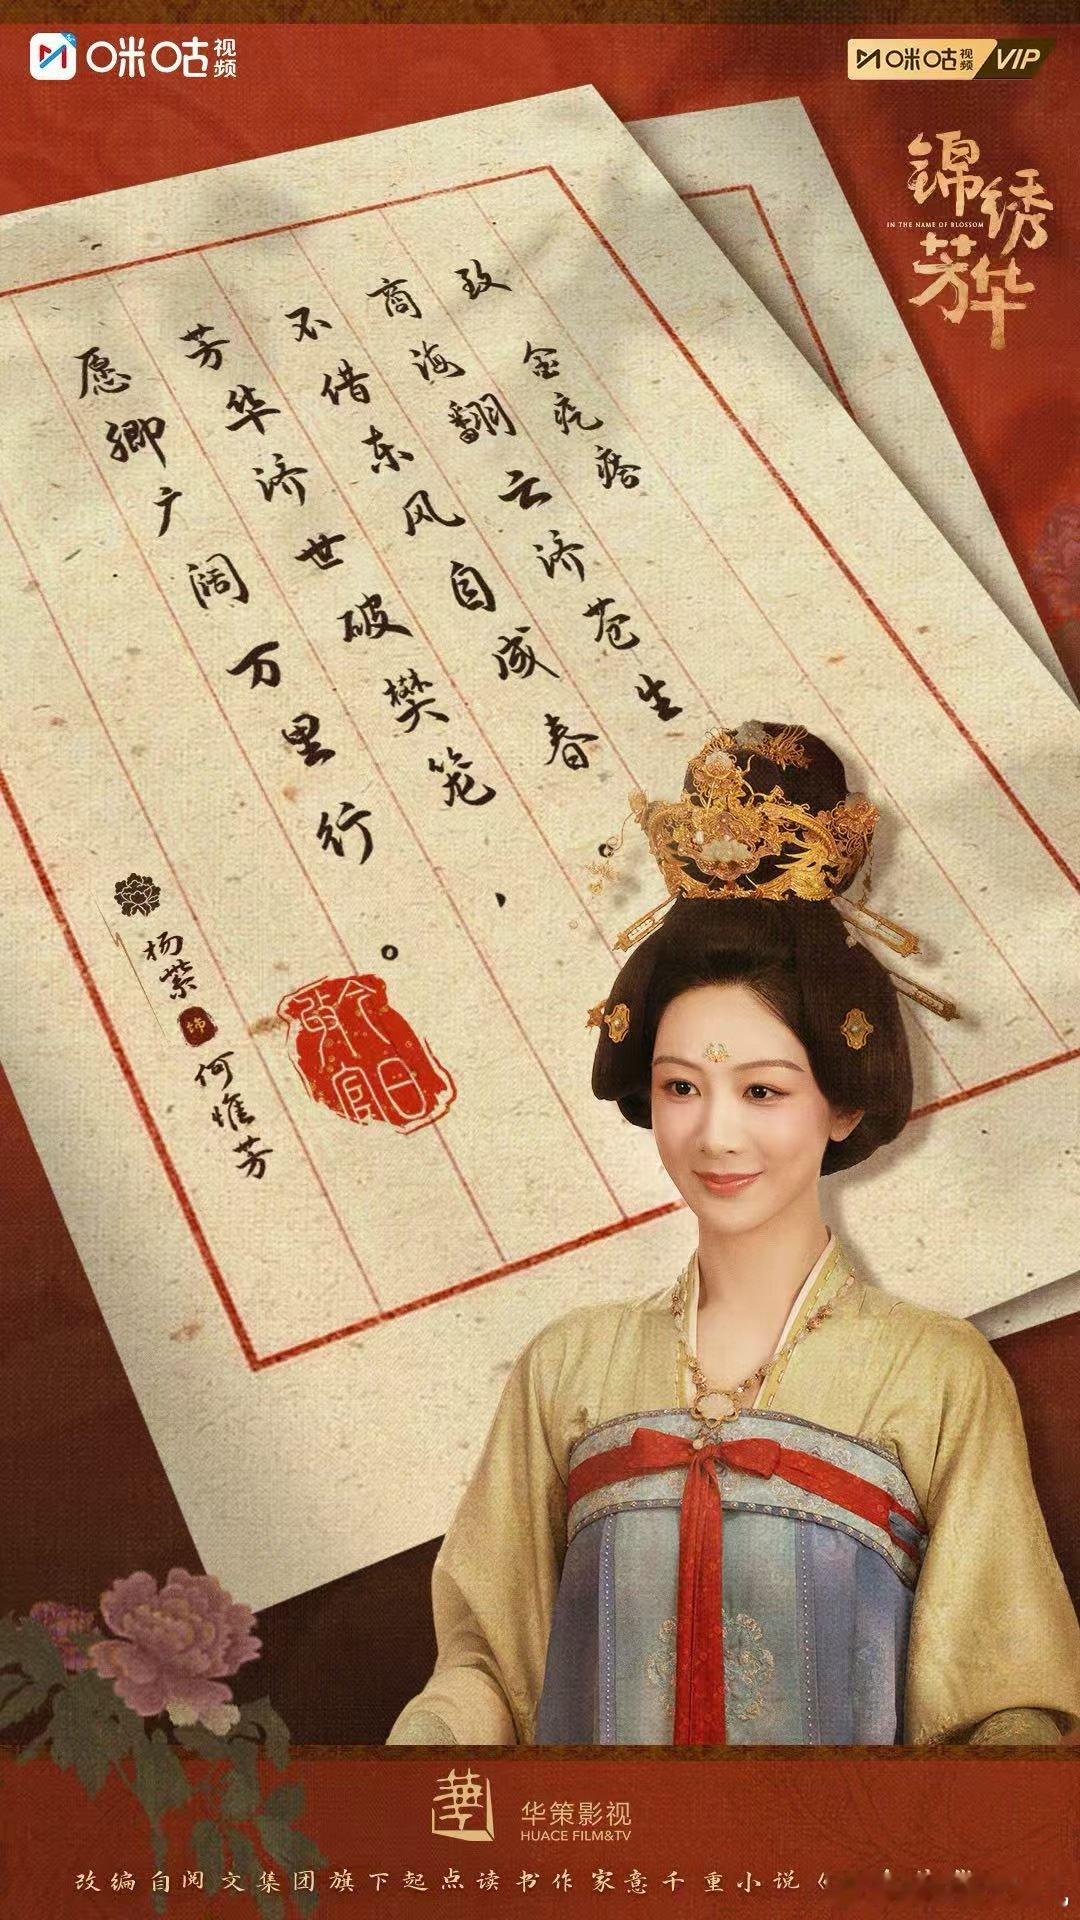 咪咕视频
咪咕视频 VIP
锦绣芳华
IN THE NAME OF BLOSSOM
致 金疙瘩
商海翻云济苍生
不借东风自成春。
芳华济世破樊笼、
愿卿广阔万里行。
杨紫 饰 何惟芳
華
华策影视
HUACE FILM&TV
改编自阅文集团旗下起点读书作家意千重小说《